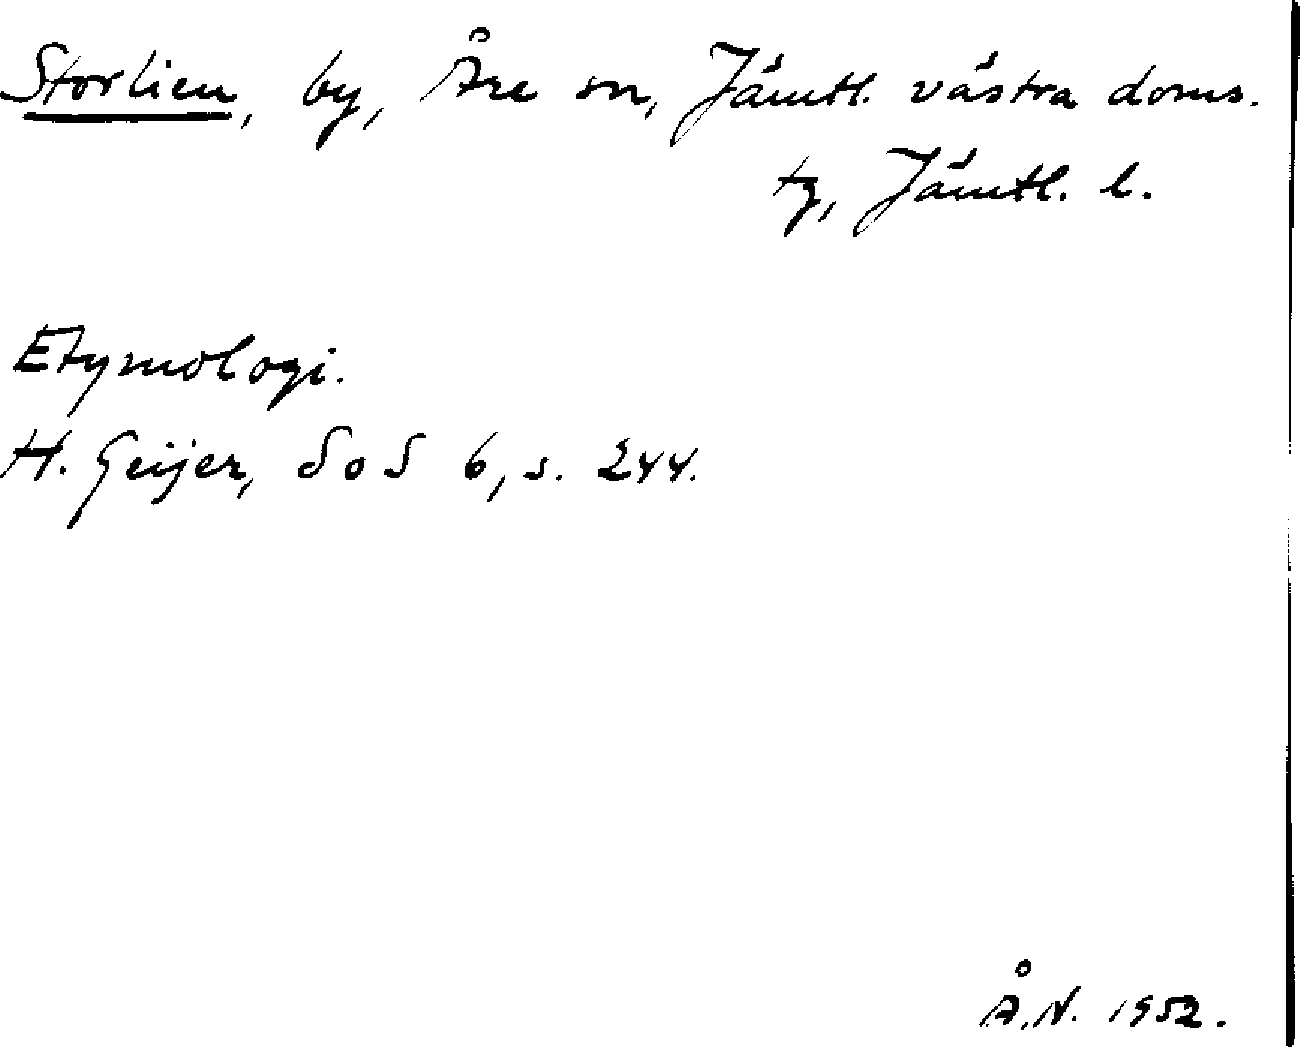 Storlien, by, Åre sn, Jämtl. västra doms.
tg, Jämtl. l.
Etymologi.
H. Geijer, SoS 6, s. 244.
Å.N. 1952.